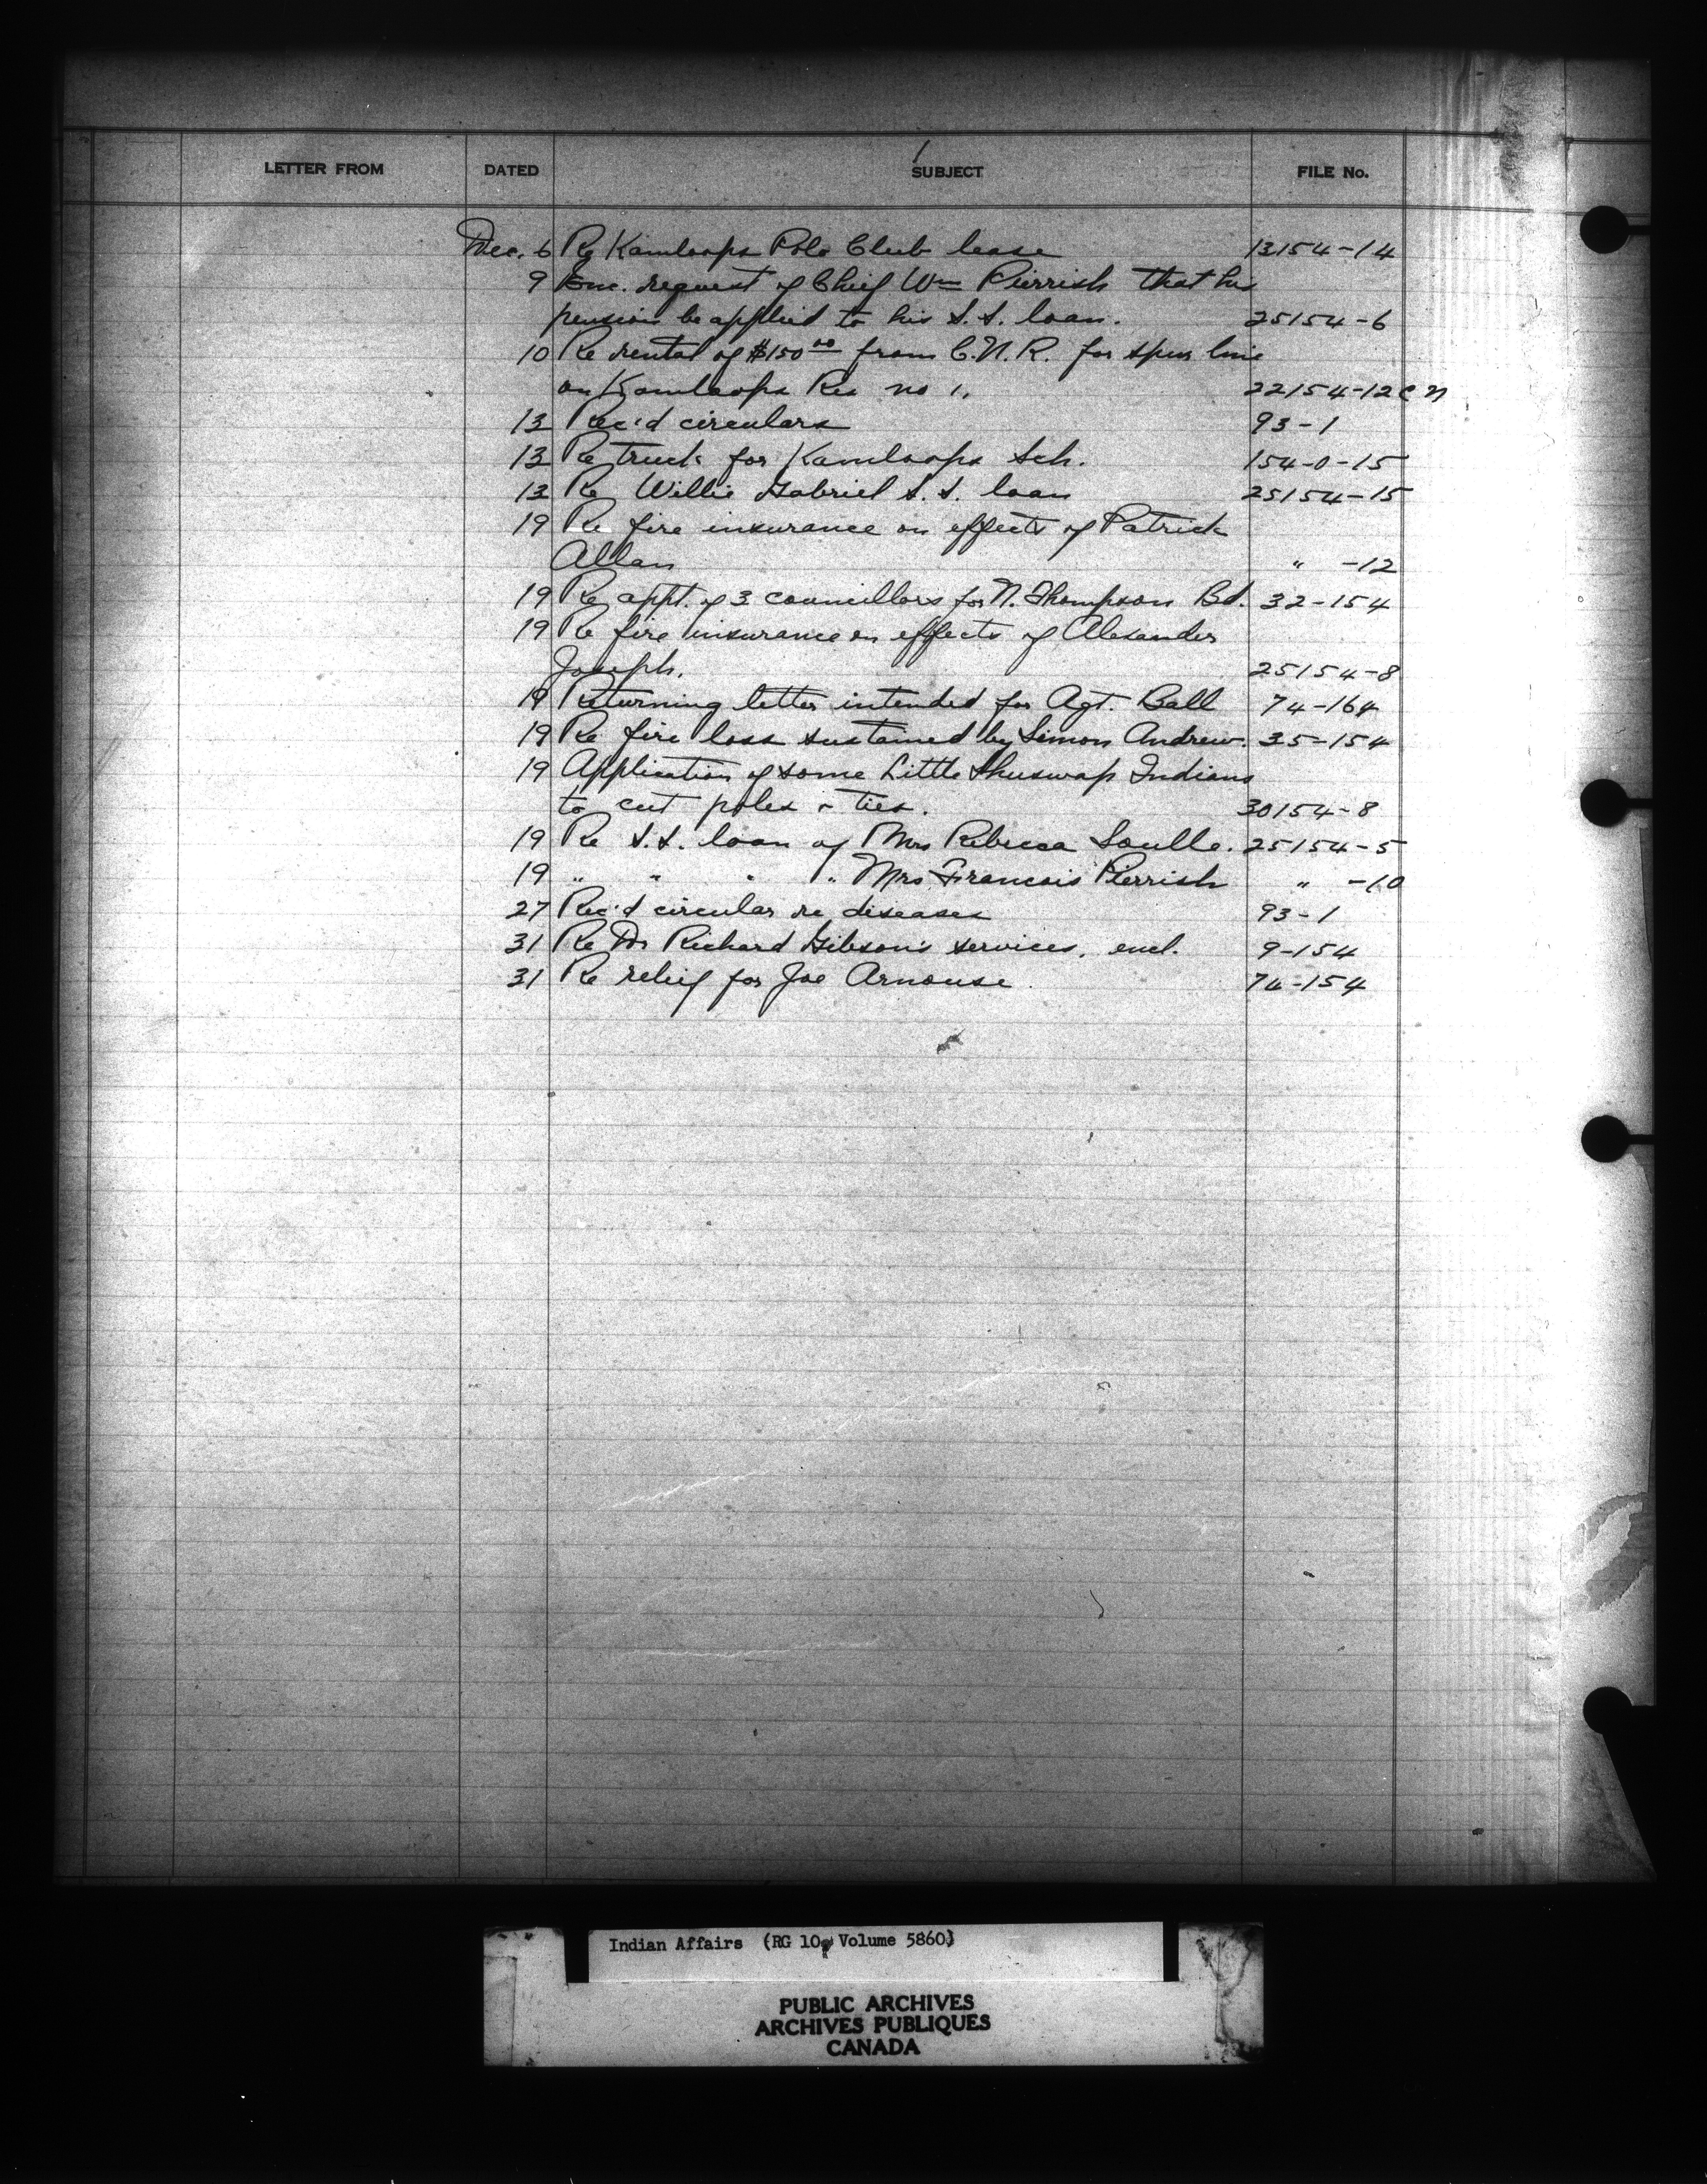 LETTER FROM DATED SUBJECT FILE No.
Dec. 6 Re Kamloops Polo Club lease 13154-14
9 Enc. request of Chief Wm Pierrish that his
pension be applied to his S.S. loan. 25154-6
10 Re rental of $150.00 from C.N.R. for spur line
on Kamloops Res no 1. 22154-12 C N
13 Rec'd circulars 93-1
13 Re truck for Kamloops Sch. 154-0-15
13 Re Willie Gabriel S.S. loan 25154-15
19 Re fire insurance on effects of Patrick
Allan " -12
19 Re appt. of 3 councillors for N. Thompson Bd. 32-154
19 Re fire insurance on effects of Alexander
Joseph. 25154-8
19 Returning letter intended for Agt. Ball 74-164
19 Re fire loss sustained by Simon Andrew. 35-154
19 Application of some Little Shuswap Indians
to cut poles & ties. 30154-8
19 Re S.S. loan of Mrs Rebecca Soulle. 25154-5
19 " " " " Mrs Francois Pierrish " -10
27 Rec'd circular re diseases 93-1
31 Re Dr Richard Gibson's services, encl. 9-154
31 Re relief for Joe Arnouse. 74-154
Indian Affairs (RG 10, Volume 5860)
PUBLIC ARCHIVES
ARCHIVES PUBLIQUES
CANADA